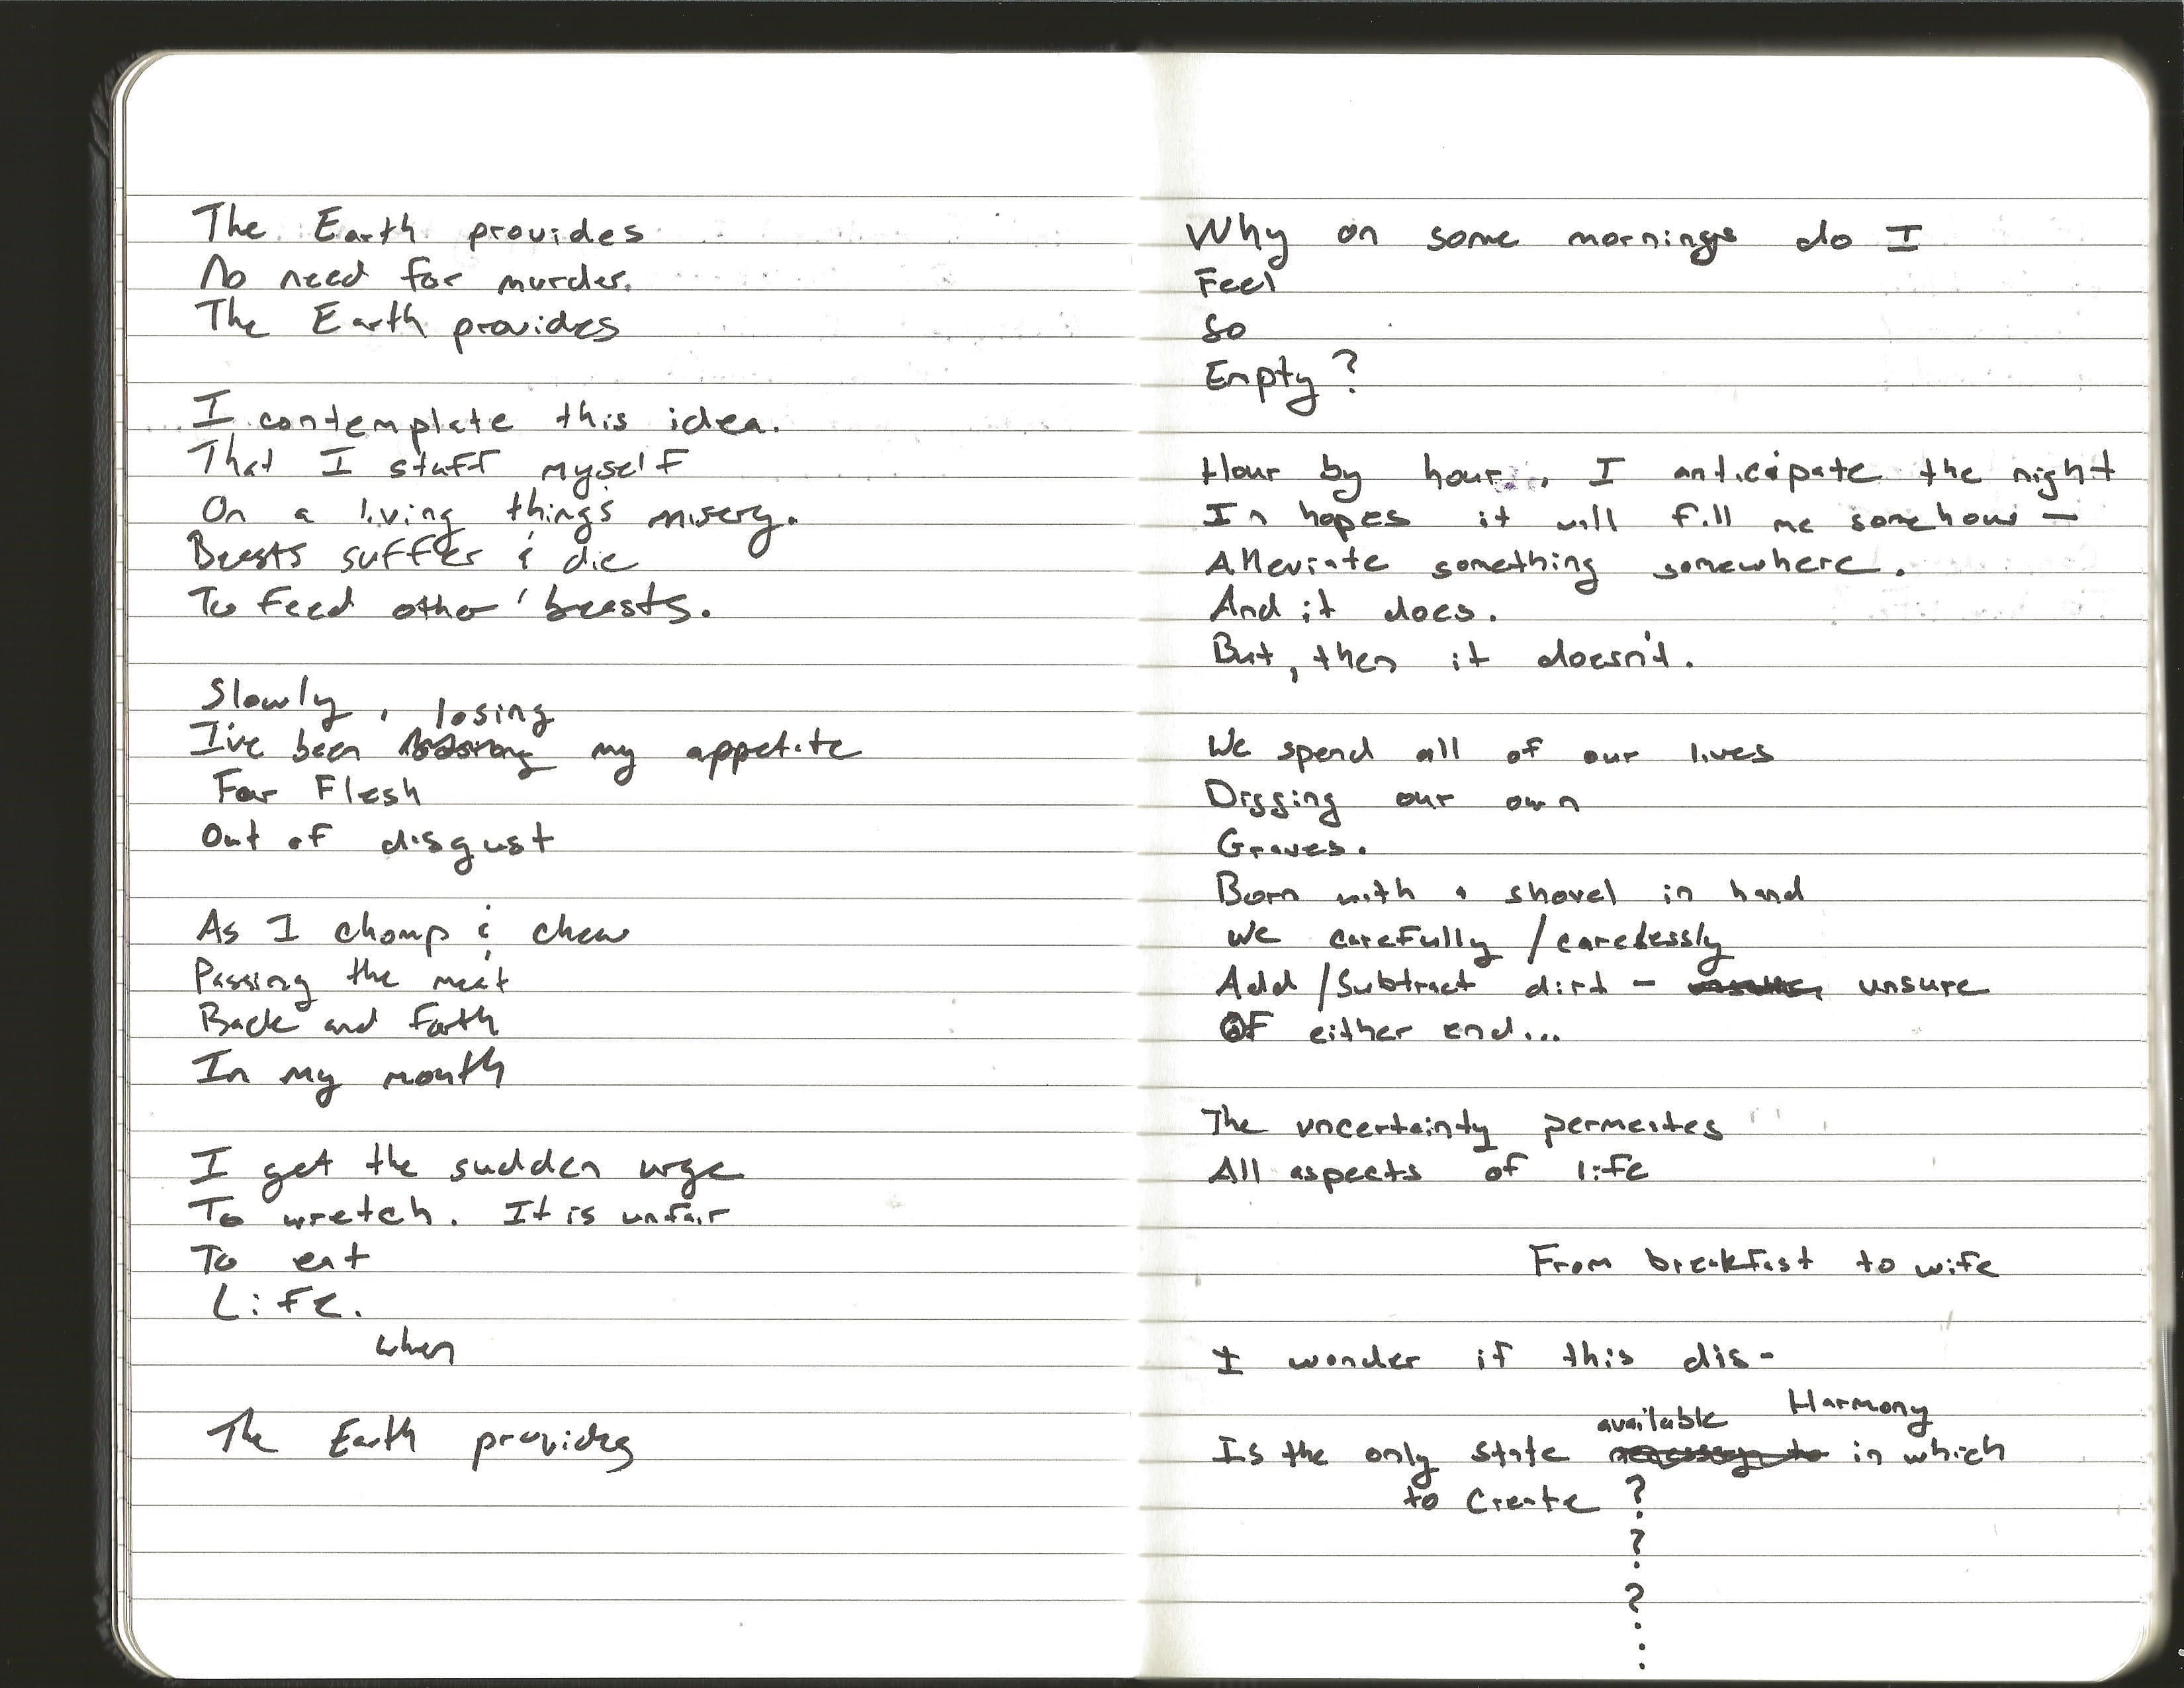 The Earth provides
No need for murder.
The Earth provides
I contemplate this idea.
That I stuff myself
On a living things misery.
Beasts suffer & die
To feed other beasts.
Slowly,
losing
I've been my appetite
For Flesh
Out of disgust
As I chomp & chew
Passing the meat
Back and forth
In my mouth
I get the sudden urge
To wretch. It is unfair
To eat
Life.
when
The Earth provides
Why on some mornings do I
Feel
So
Empty?
Hour by hour, I anticipate the night
In hopes it will fill me somehow —
Alleviate something somewhere.
And it does.
But, then it doesn't.
We spend all of our lives
Digging our own
Graves.
Born with a shovel in hand
We carefully/carelessly
Add/Subtract dirt - unsure
Of either end...
The uncertainty permeates
All aspects of life
From breakfast to wife
I wonder if this dis-
Harmony
available
Is the only state in which
to Create ?
?
?